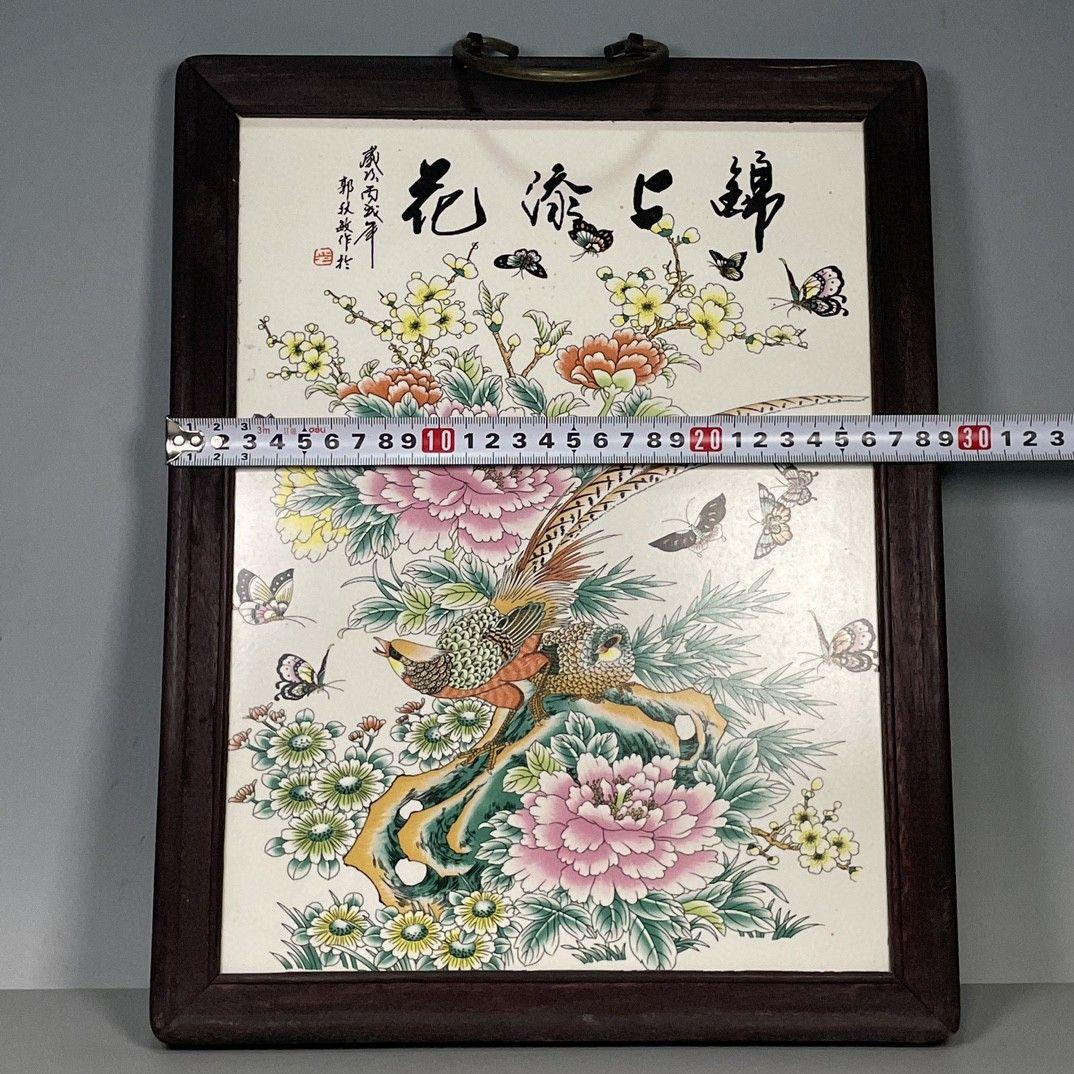 錦上添花
歲次丙戌年
郭秋敏作於
1 2 3 1 2 3
3m deli
1 2 3 4 5 6 7 8 9 10 1 2 3 4 5 6 7 8 9 20 1 2 3 4 5 6 7 8 9 30 1 2 3